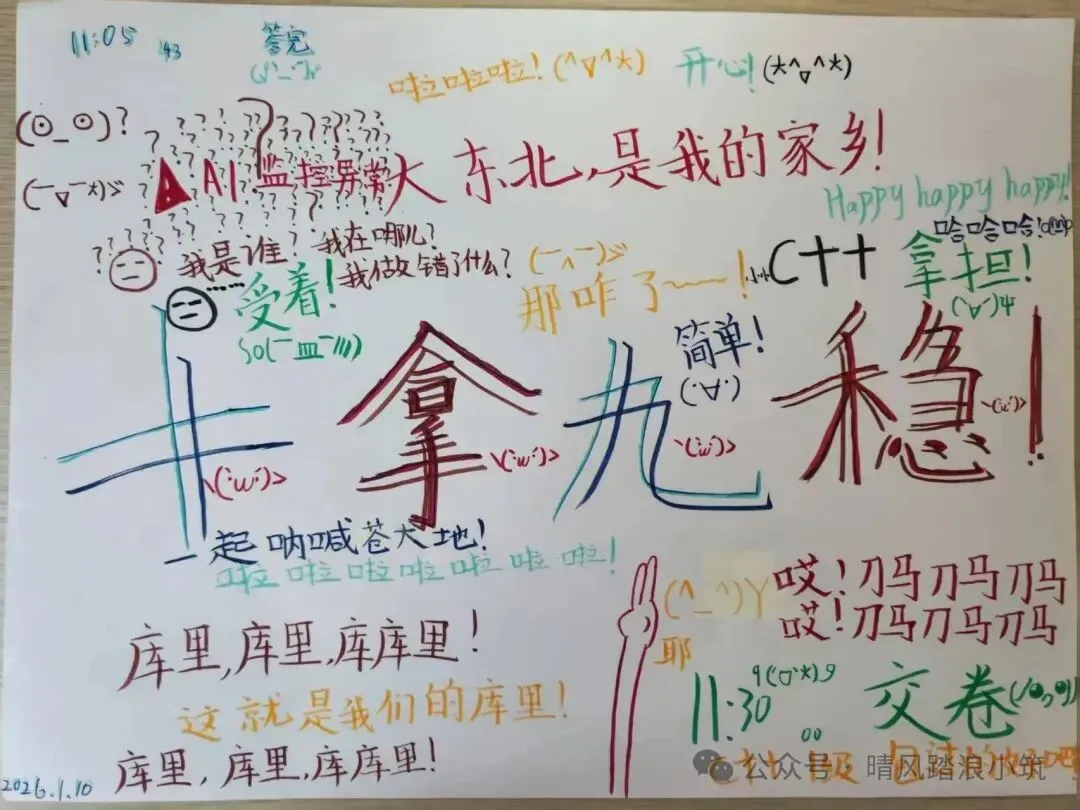 11:05
:43
答完
啦啦啦！(^▽^*)
开心！(*^▽^*)
(⊙_⊙)?
AI监控异常
大东北，是我的家乡！
Happy happy happy!
我是谁？我在哪儿？
我做错了什么？
哈哈哈哈！
C++
拿捏！
受着！
那咋了~~！
简单！
十拿九稳！
一起呐喊苍天大地！
啦啦啦啦啦啦啦！
(^_^)Y
耶
哎！刀马刀马刀马
哎！刀马刀马刀马
库里，库里，库库里！
这就是我们的库里！
库里，库里，库库里！
11:30
00
交卷
2026.1.10
公众号：晴风踏浪小筑